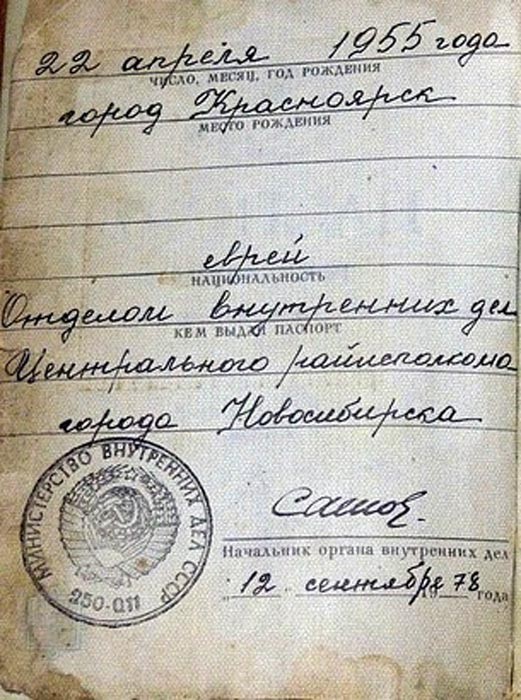 22 апреля 1955 года
ЧИСЛО, МЕСЯЦ, ГОД РОЖДЕНИЯ
город Красноярск
МЕСТО РОЖДЕНИЯ
еврей
НАЦИОНАЛЬНОСТЬ
Отделом внутренних дел
КЕМ ВЫДАН ПАСПОРТ
Центрального райисполкома
города Новосибирска
МИНИСТЕРСТВО ВНУТРЕННИХ ДЕЛ СССР
250-011
Начальник органа внутренних дел
„12" сентября 1978 года